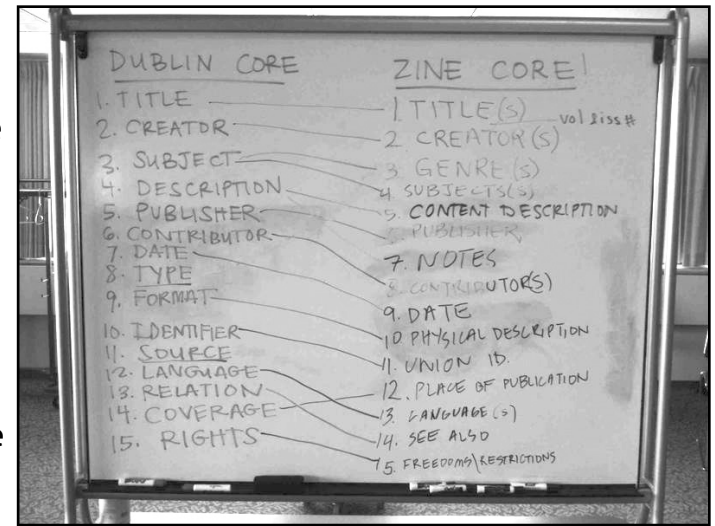 DUBLIN CORE
1. TITLE
2. CREATOR
3. SUBJECT
4. DESCRIPTION
5. PUBLISHER
6. CONTRIBUTOR
7. DATE
8. TYPE
9. FORMAT
10. IDENTIFIER
11. SOURCE
12. LANGUAGE
13. RELATION
14. COVERAGE
15. RIGHTS
ZINE CORE!
1. TITLE(S) vol &iss#
2 CREATOR(S)
3 GENRE(S)
4 SUBJECTS(S)
5. CONTENT DESCRIPTION
6 PUBLISHER
7. NOTES
8 CONTRIBUTOR(S)
9. DATE
10. PHYSICAL DESCRIPTION
11. UNION ID.
12. PLACE OF PUBLICATION
13. LANGUAGE(S)
14. SEE ALSO
15. FREEDOMS\RESTRICTIONS